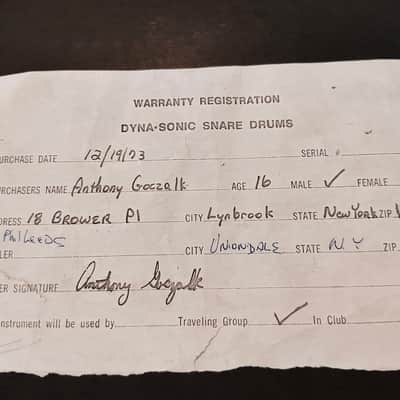 WARRANTY REGISTRATION
DYNA-SONIC SNARE DRUMS
PURCHASE DATE 12/19/73 SERIAL #
PURCHASERS NAME Anthony Goczalk AGE 16 MALE ✓ FEMALE
DRESS 18 BROWER Pl CITY Lynbrook STATE New York ZIP
Phil Leeds
LER CITY UNIONDALE STATE N Y ZIP
ER SIGNATURE Anthony Goczalk
nstrument will be used by Traveling Group ✓ In Club